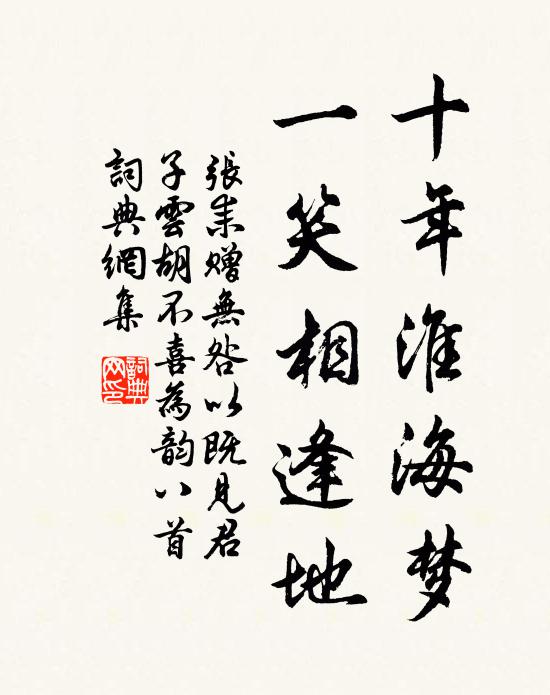 十年淮海梦
一笑相逢地
張耒赠無咎以既見君
子雲胡不喜為韵八首
詞典網集
詞典网印